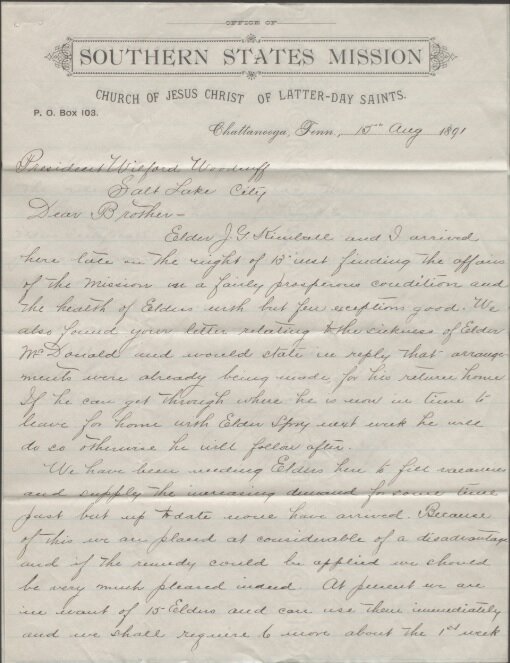 OFFICE OF
SOUTHERN STATES MISSION
CHURCH OF JESUS CHRIST OF LATTER-DAY SAINTS.
P. O. Box 103.
Chattanooga, Tenn., 15th Aug 1891
President Wilford Woodruff
Salt Lake City
Dear Brother-
Elder J G Kimball and I arrived
here late in the night of 13th inst finding the affairs
of the Mission in a fairly prosperous condition and
the health of Elders with but few exceptions good. We
also found your letter relating to the sickness of Elder
McDonald and would state in reply that arrange-
ments were already being made for his return home
If he can get through where he is now in time to
leave for home with Elder Spry next week he will
do so otherwise he will follow after.
We have been needing Elders here to fill vacancies
and supply the increasing demand for some time
past but up to date none have arrived. Because
of this we are placed at considerable of a disadvantage
and if the remedy could be applied we should
be very much pleased indeed. At present we are
in want of 15 Elders and can use them immediately
and we shall require 6 more about the 1st week